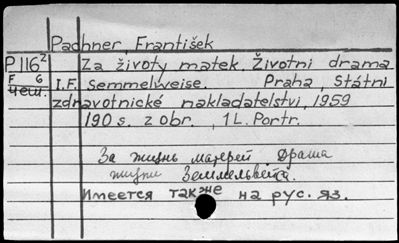 Pachner, František
P116² Za životy matek. Životni drama
F 6
чеш. I.F. Semmelweise. Praha, Státni
zdravotnické nakladatelstvi, 1959
190 s. z obr., 1 L. Portr.
За жизнь матерей Драма
жизни Земмельвейса.
Имеется также на рус. яз.